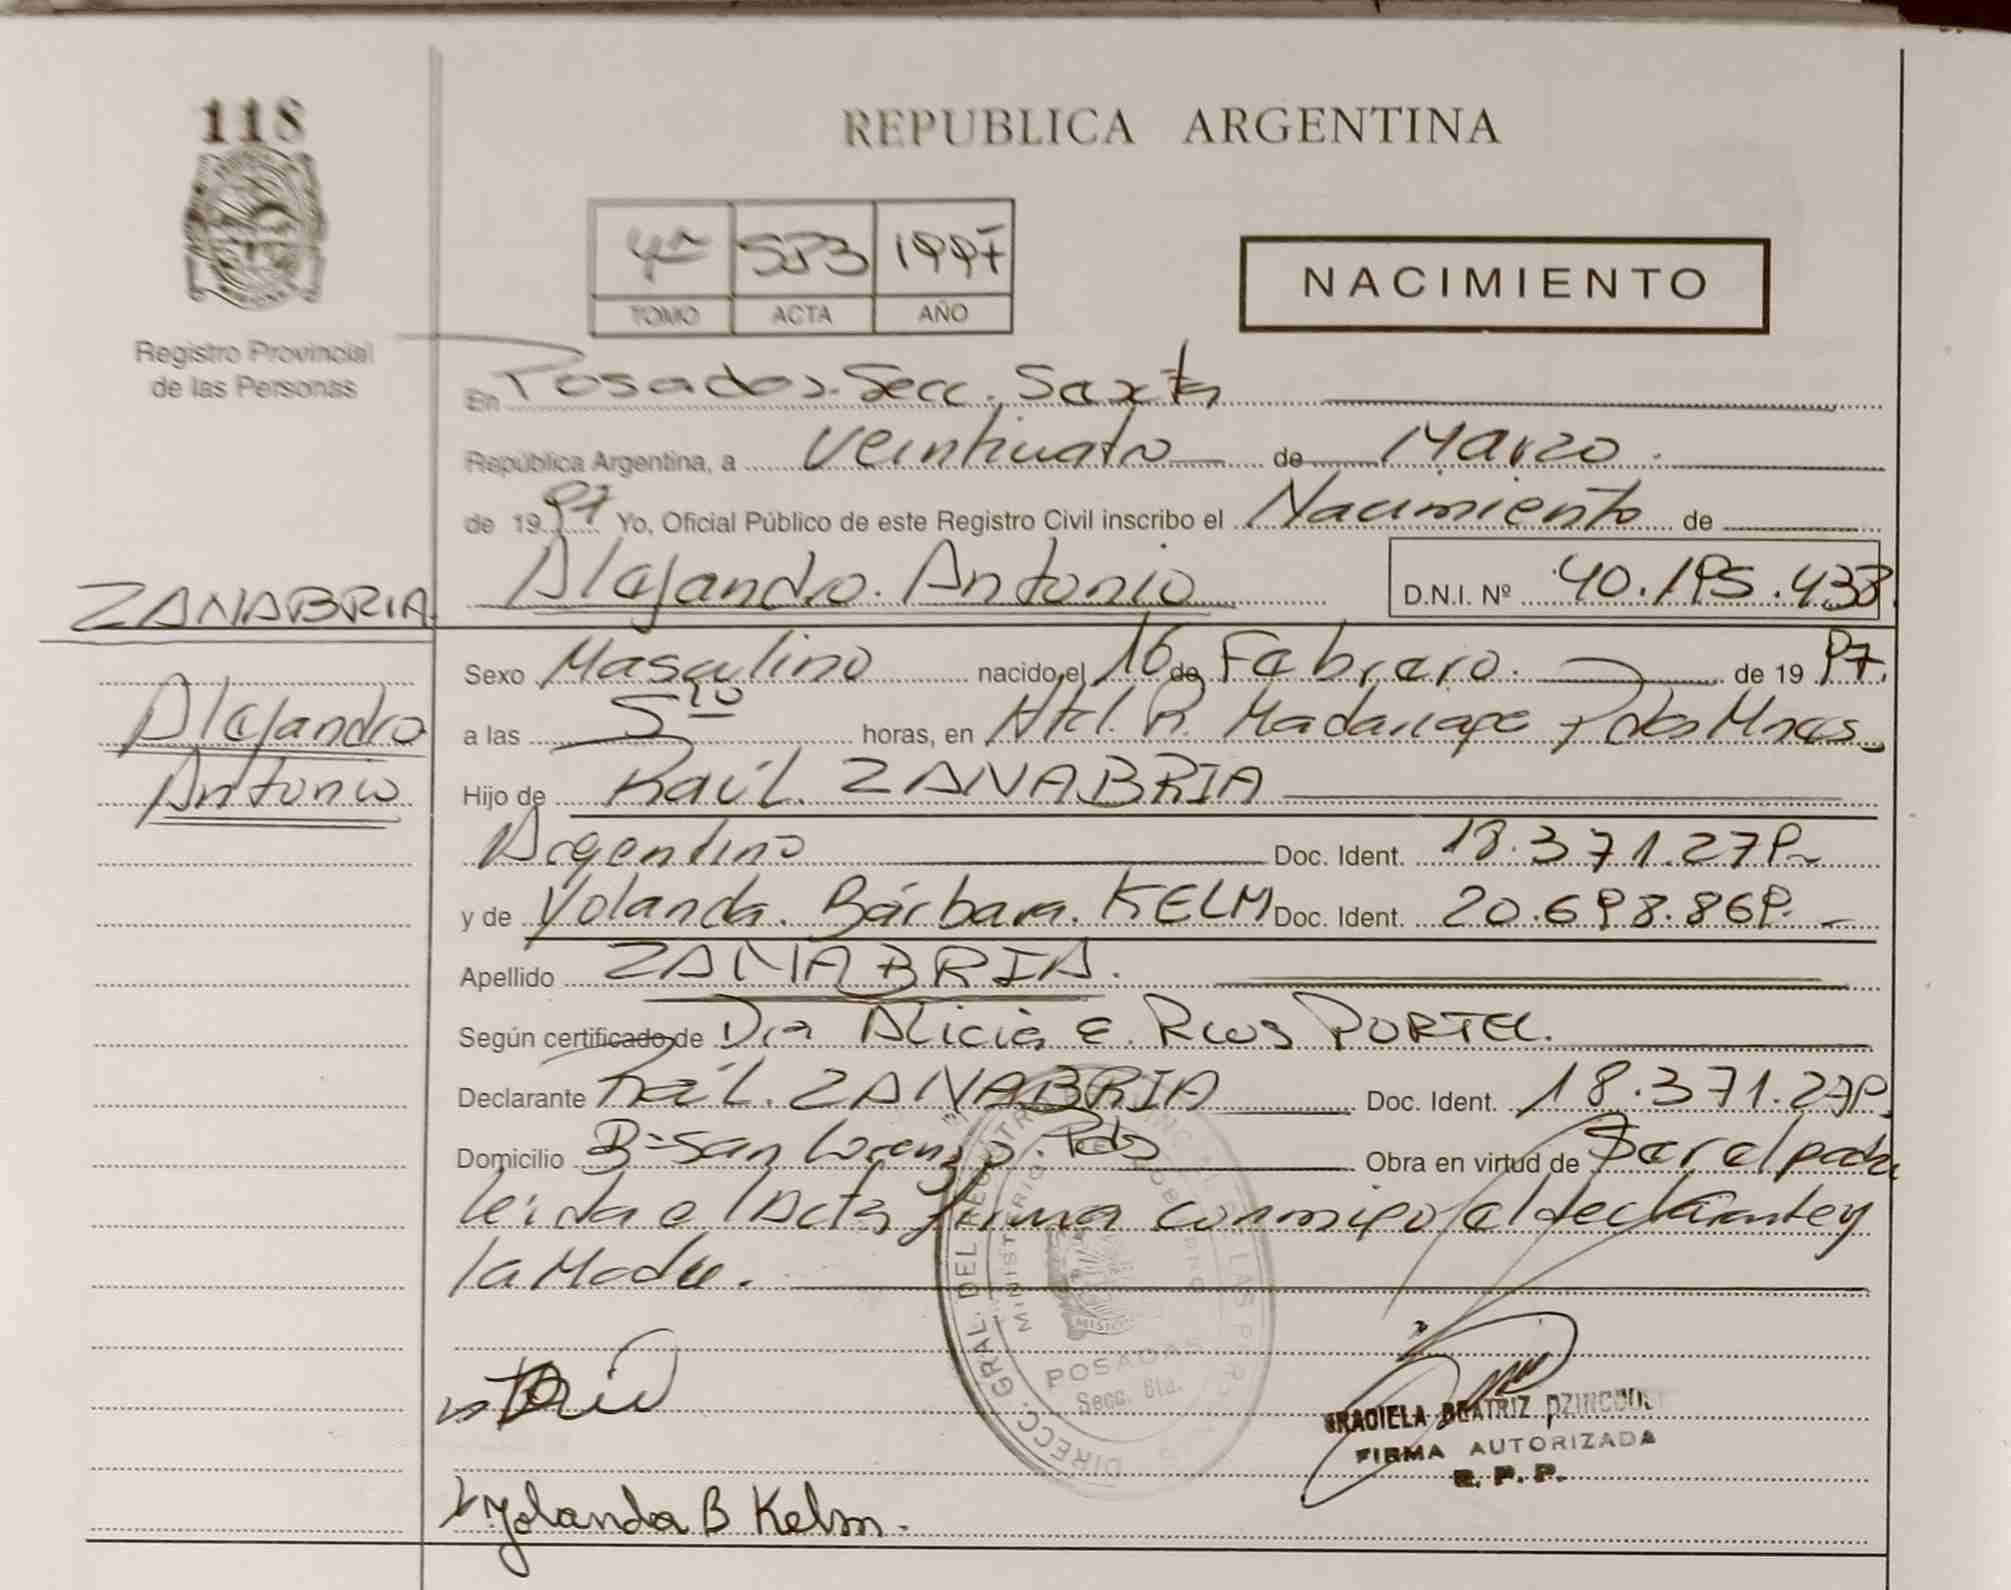 118
REPUBLICA ARGENTINA
4ª 593 1997
TOMO ACTA AÑO
NACIMIENTO
Registro Provincial
de las Personas
En Posadas. Secc. Sexta
República Argentina, a Veinticuatro de Marzo.
de 1997 Yo, Oficial Público de este Registro Civil inscribo el Nacimiento de
ZANABRIA
Alejandro Antonio
Alejandro. Antonio D.N.I. Nº 40.195.433
Sexo Masculino nacido el 16 de Febrero. de 1997.
a las 5 10 horas, en Htal. R. Madariaga Pdas Mnes
Hijo de Raúl. ZANABRIA
Argentino Doc. Ident. 18.371.279
y de Yolanda. Bárbara. KELM Doc. Ident. 20.698.869.
Apellido ZANABRIA.
Según certificado de Dra Alicia E. Rios PORTEL.
Declarante Raúl. ZANABRIA Doc. Ident. 18.371.279
Domicilio Bº San Lorenzo. Pdas Obra en virtud de Ser el padre
leída el Acta firma conmigo el declarante y
la Madre.
DIRECC. GRAL. DEL REGISTRO PROVINCIAL DE LAS PERSONAS
MINISTERIO DE GOBIERNO
MISIONES
POSADAS
Secc. 6ta.
GRACIELA BEATRIZ
FIRMA AUTORIZADA
R. P. P.
Yolanda B Kelm.